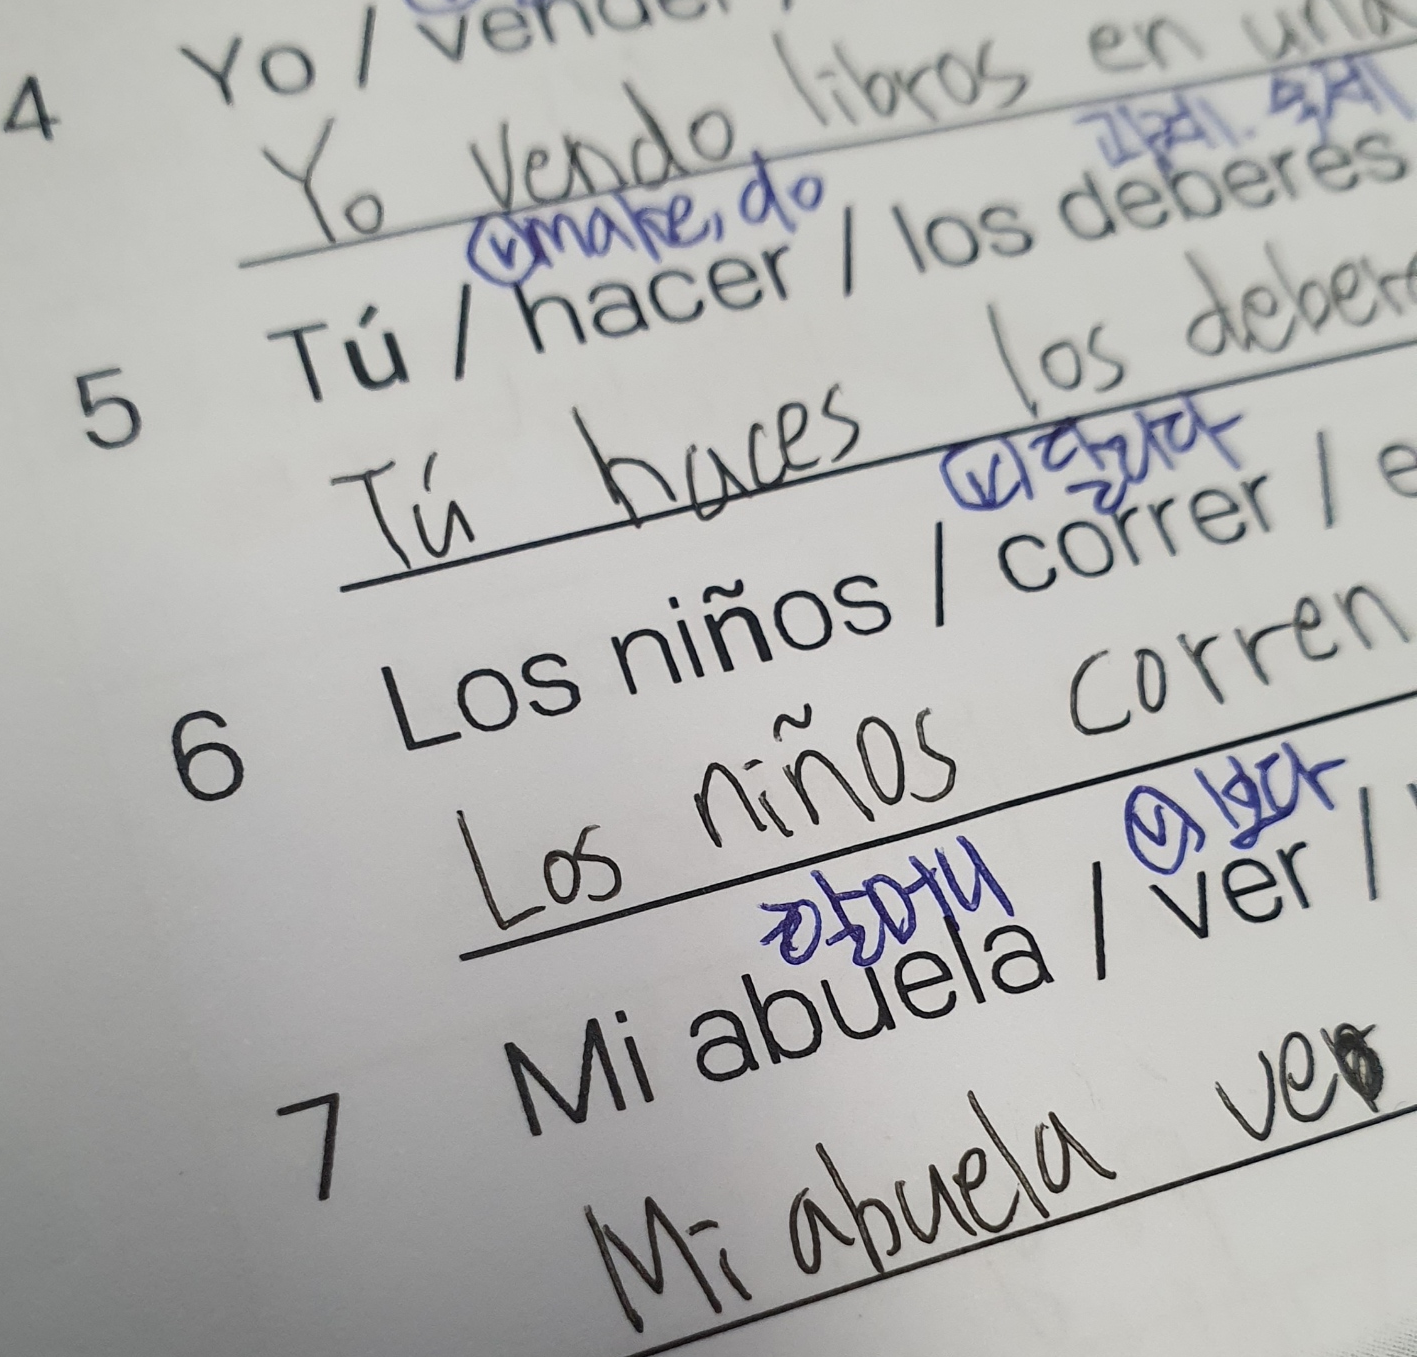 4 Yo / vender
Yo vendo libros en una
ⓥ make, do 과제. 숙제
5 Tú / hacer / los deberes
Tú haces los deber
ⓥ 달리다
6 Los niños / correr / e
Los niños corren
할머니 ⓥ 보다
7 Mi abuela / ver /
Mi abuela ve